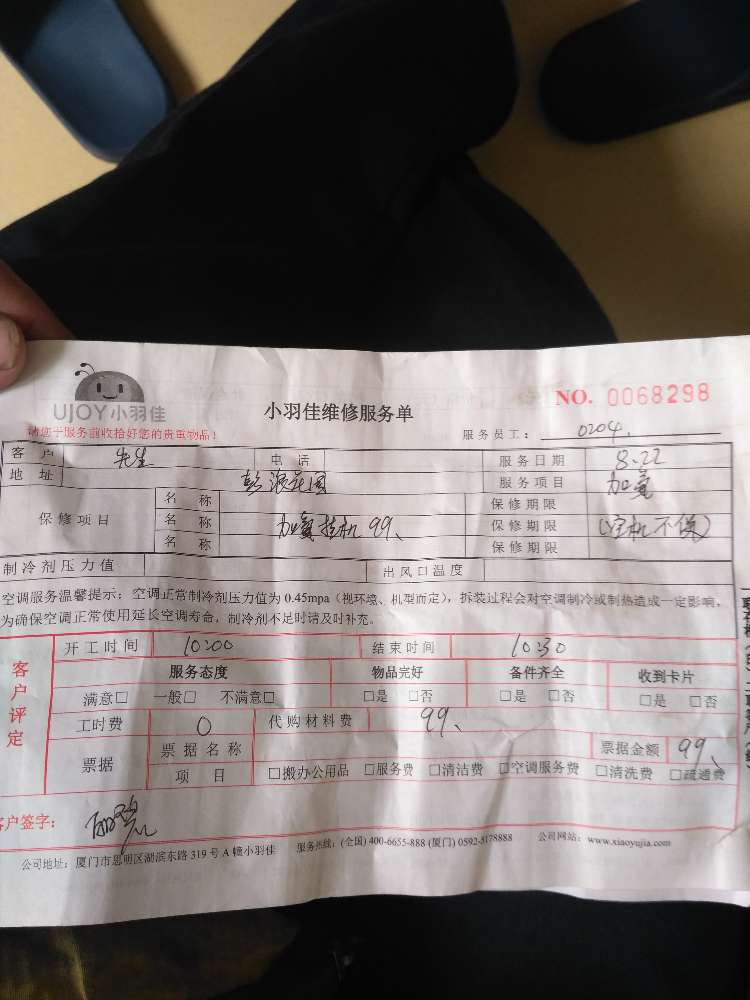 UJOY小羽佳
小羽佳维修服务单
NO. 0068298
请您于服务前收拾好您的贵重物品!
服务员工: 0204
客户 先生 电话 服务日期 8.22
地址 彭浪花园 服务项目 加氟
保修项目
名称 保修期限
名称 加氟挂机 99、 保修期限 (空机不保)
名称 保修期限
制冷剂压力值 出风口温度
空调服务温馨提示:空调正常制冷剂压力值为 0.45mpa(视环境、机型而定),拆装过程会对空调制冷或制热造成一定影响,
为确保空调正常使用延长空调寿命,制冷剂不足时请及时补充。
客户评定
开工时间 10:00 结束时间 10:30
服务态度 物品完好 备件齐全 收到卡片
满意□ 一般□ 不满意□ □是 □否 □是 □否 □是 □否
工时费 0 代购材料费 99、
票据 票据名称 票据金额 99、
项目 □搬办公用品 □服务费 □清洁费 □空调服务费 □清洗费 □疏通费
客户签字:
公司地址:厦门市思明区湖滨东路 319 号 A 幢小羽佳 服务热线:(全国) 400-6655-888 (厦门) 0592-5178888 公司网站:www.xiaoyujia.com